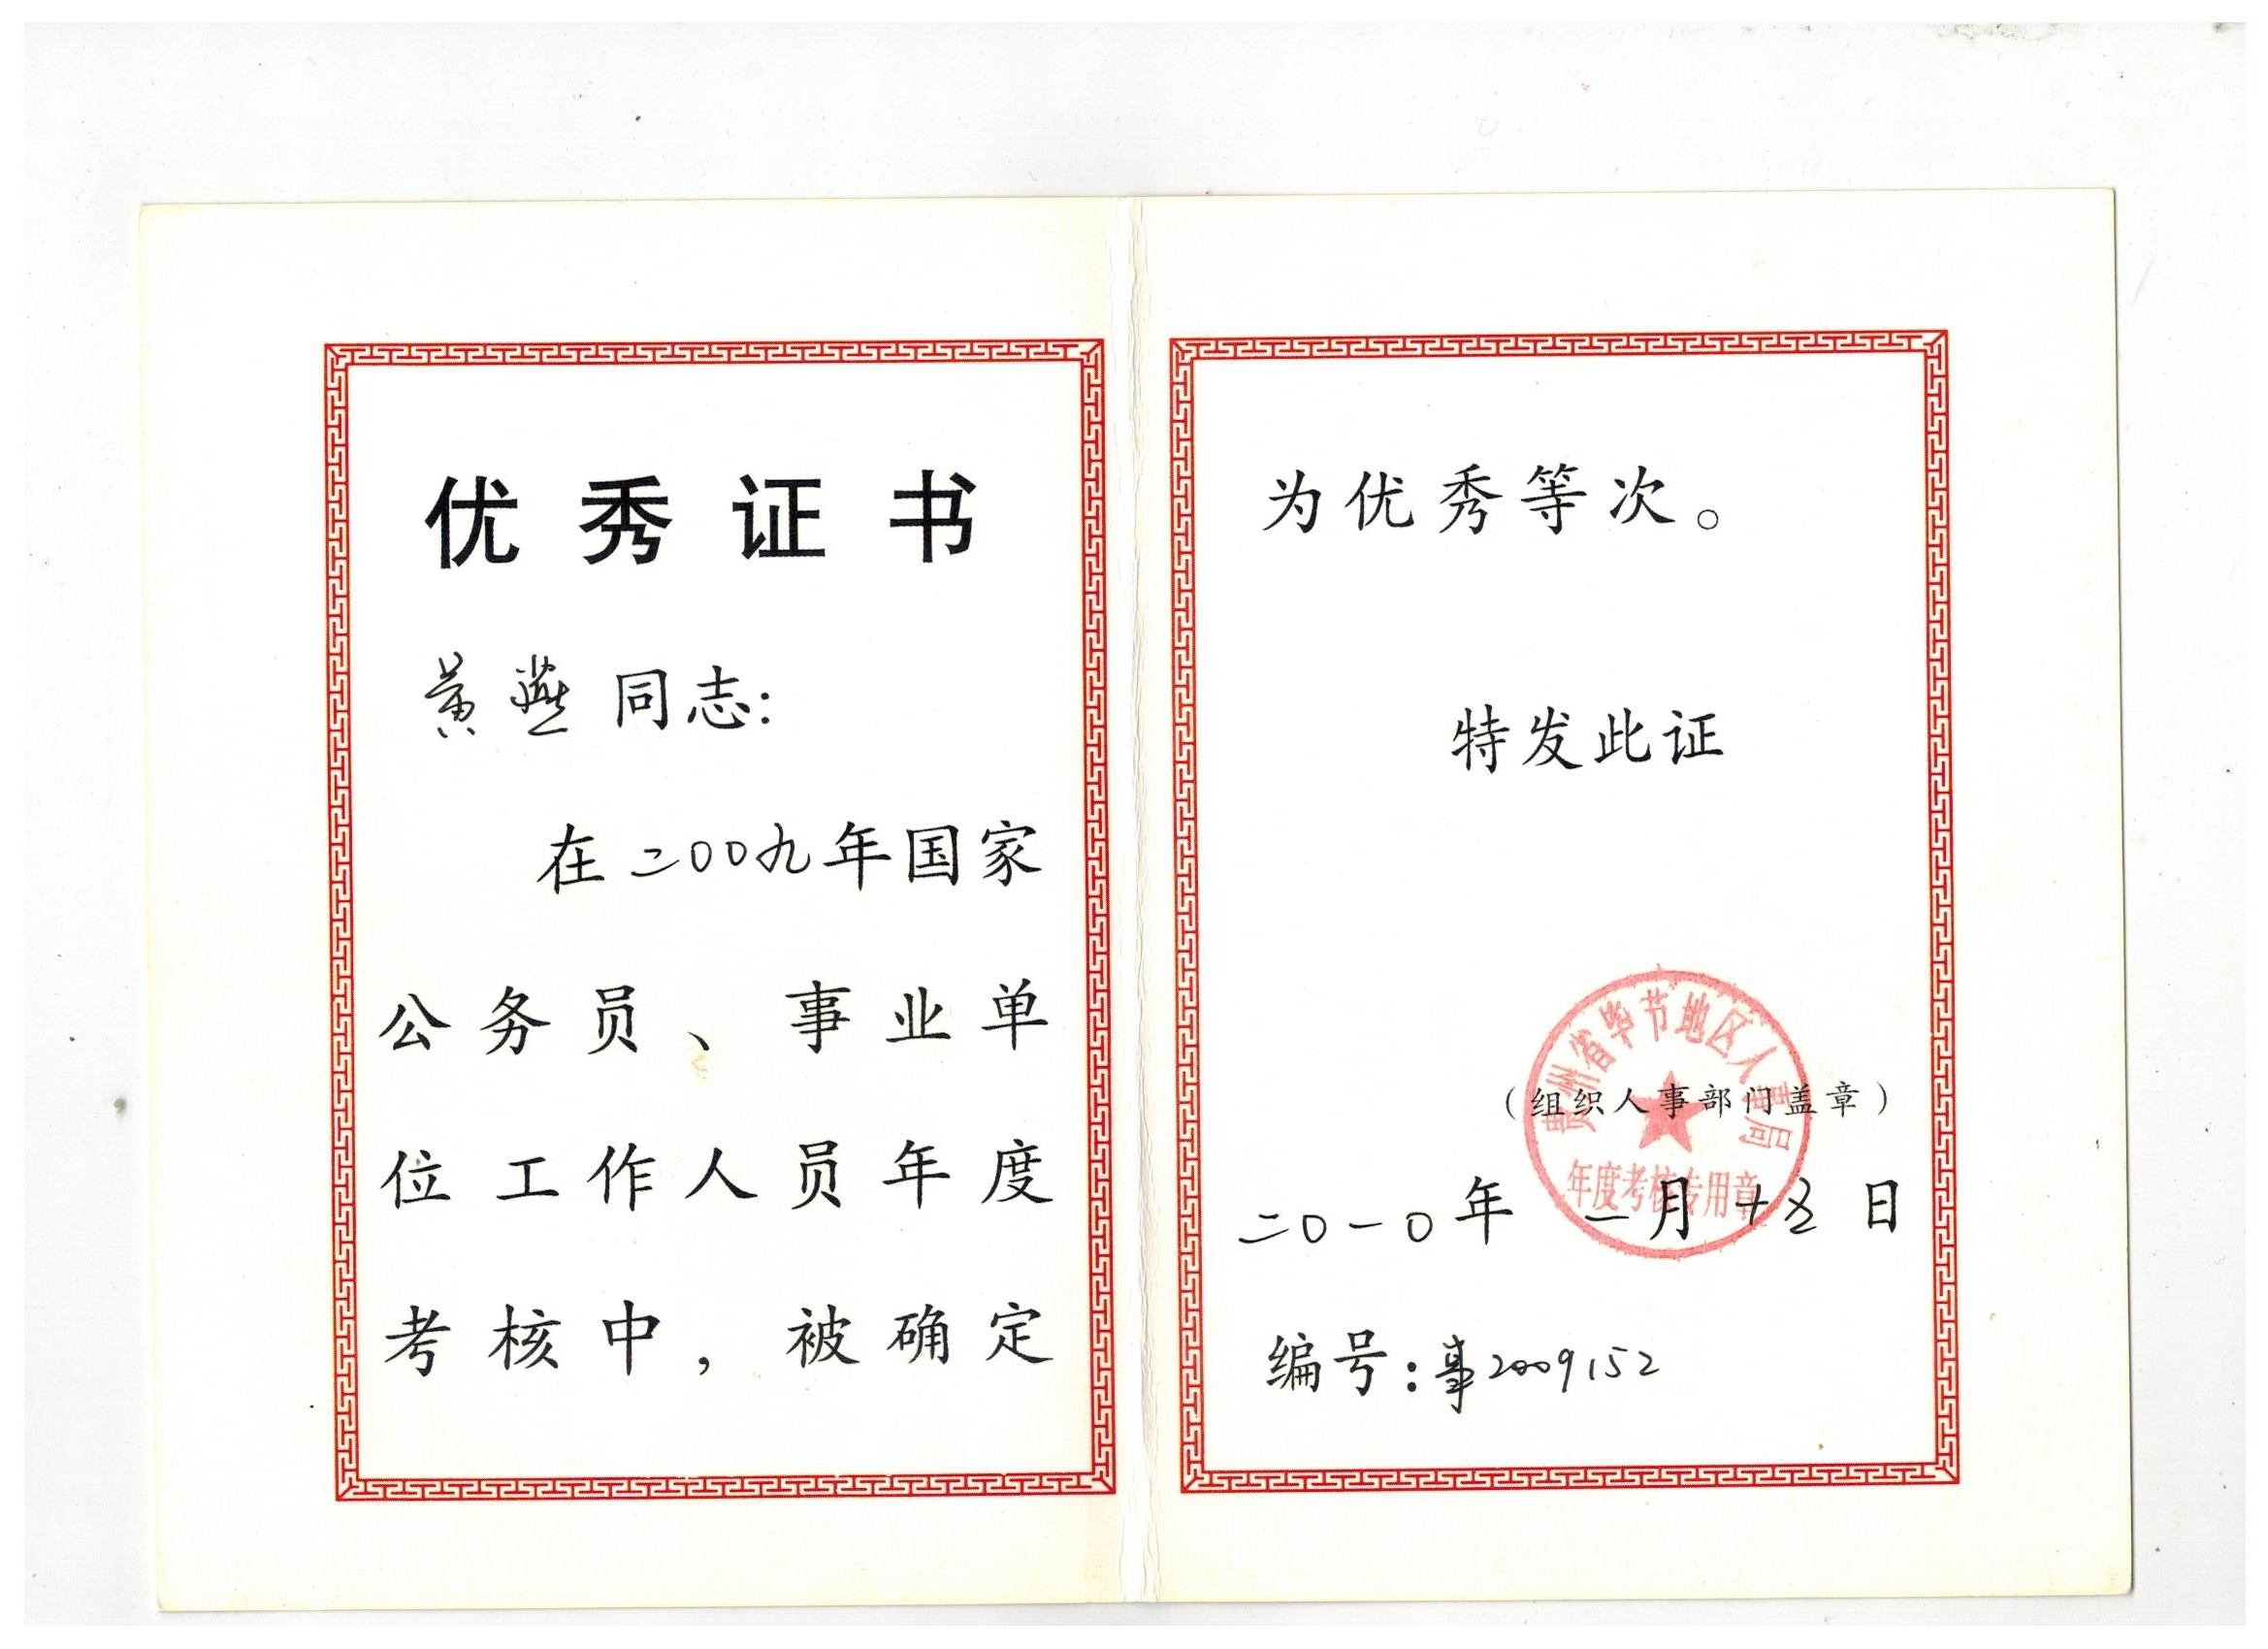 优秀证书
黄燕同志：
在二00九年国家
公务员、事业单
位工作人员年度
考核中，被确定
为优秀等次。
特发此证
贵州省毕节地区人事局
（组织人事部门盖章）
年度考核专用章
二0一0年一月十五日
编号：事2009152